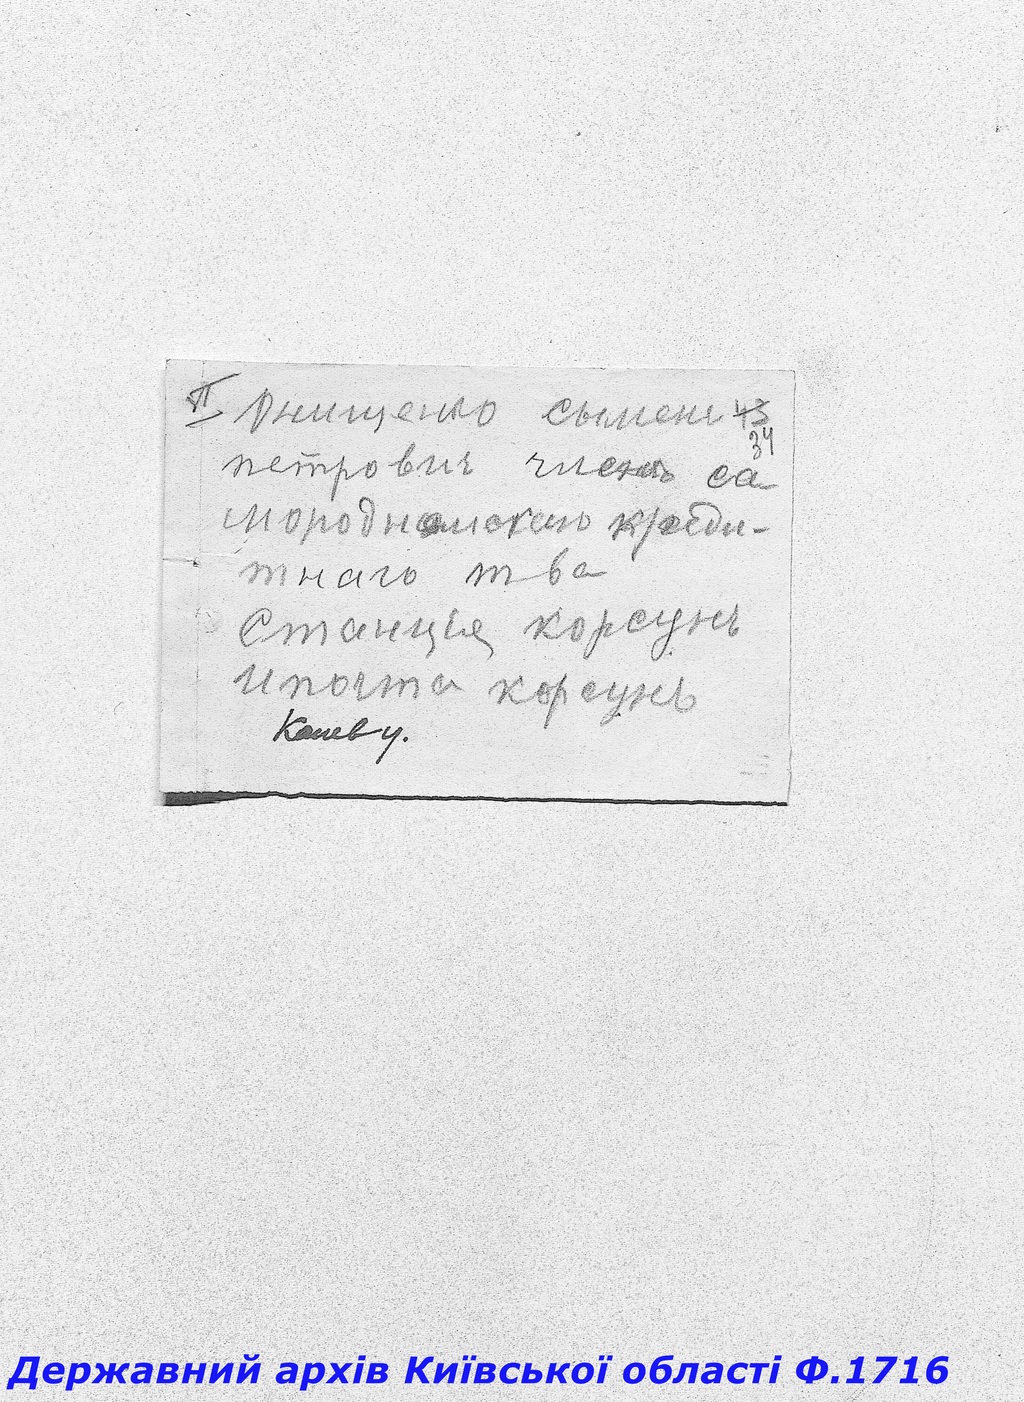 П Онищенко сымень 43
34
петрович членъ са
мородн креди-
тнаго т ва
Станция корсунь
И почта корсунь
Канев у.
Державний архів Київської області Ф.1716